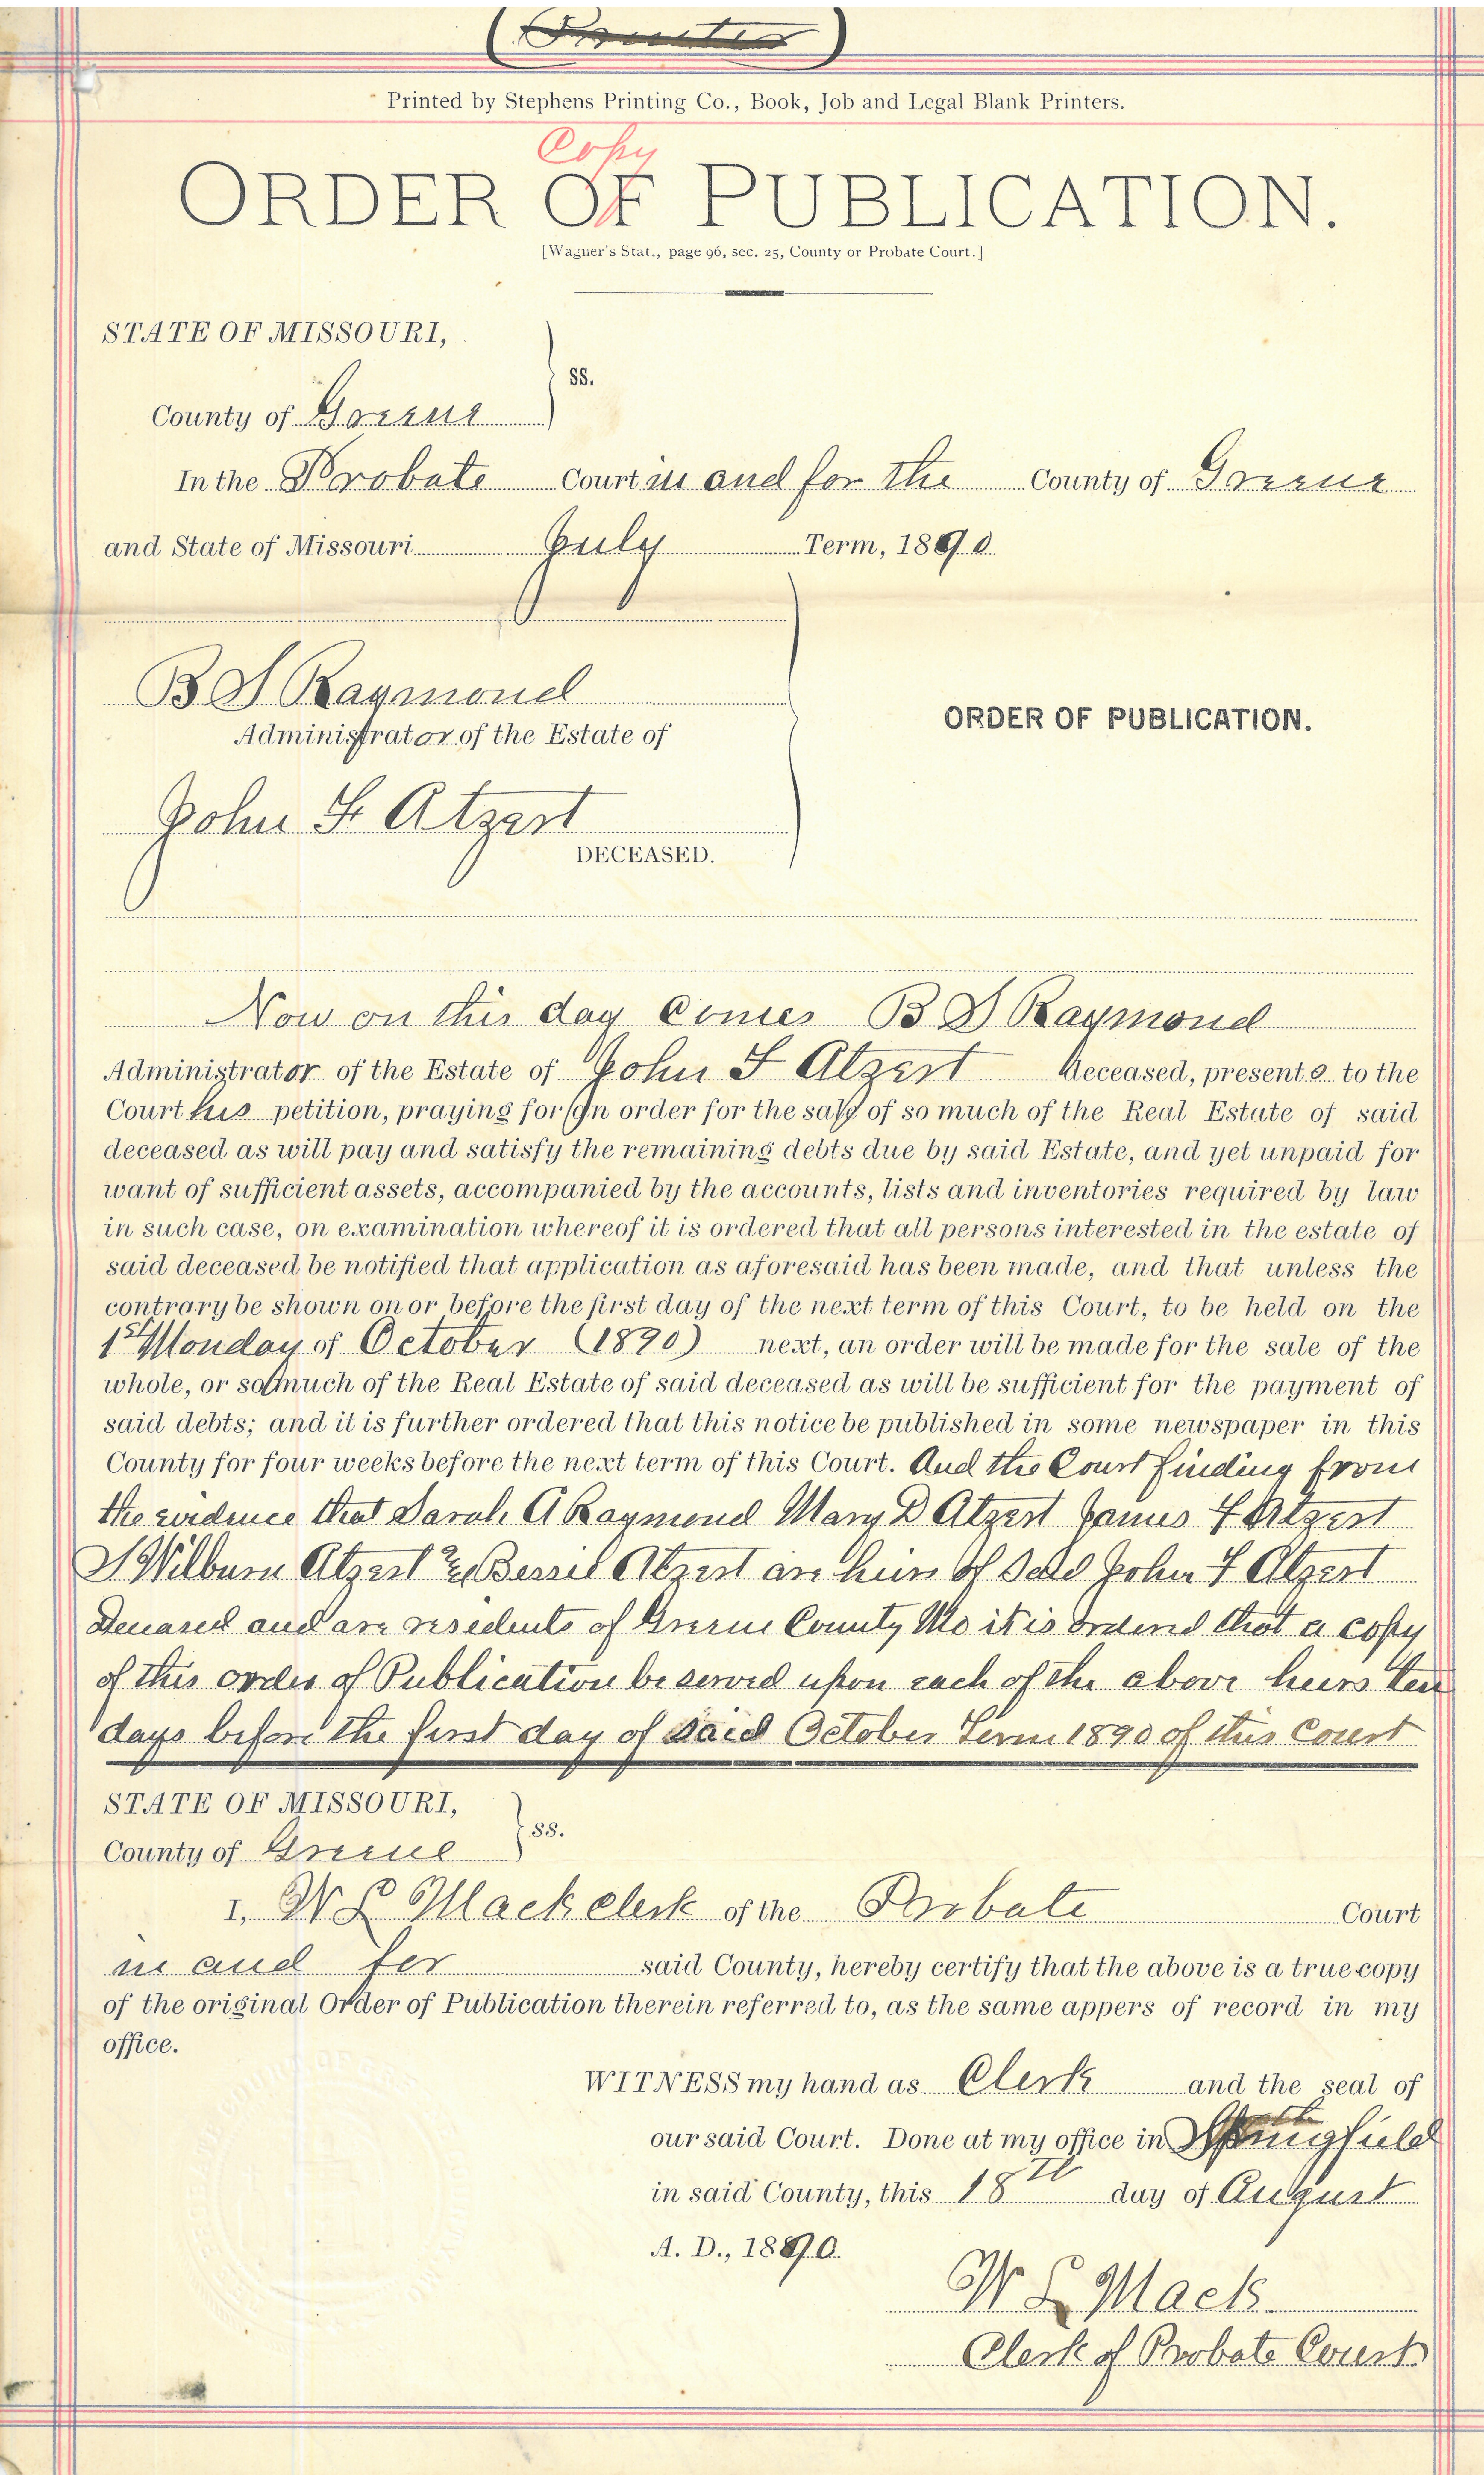 (Printer)
Printed by Stephens Printing Co., Book, Job and Legal Blank Printers.
Copy
ORDER OF PUBLICATION.
[Wagner's Stat., page 96, sec. 25, County or Probate Court.]
STATE OF MISSOURI,
ss.
County of Greene
In the Probate Court in and for the County of Greene
and State of Missouri July Term, 1890
B S Raymond
ORDER OF PUBLICATION.
Administrator of the Estate of
John F Atzert
DECEASED.
Now on this day Comes B S Raymond
Administrator of the Estate of John F Atzert deceased, presents to the
Court his petition, praying for an order for the sale of so much of the Real Estate of said
deceased as will pay and satisfy the remaining debts due by said Estate, and yet unpaid for
want of sufficient assets, accompanied by the accounts, lists and inventories required by law
in such case, on examination whereof it is ordered that all persons interested in the estate of
said deceased be notified that application as aforesaid has been made, and that unless the
contrary be shown on or before the first day of the next term of this Court, to be held on the
1st Monday of October (1890) next, an order will be made for the sale of the
whole, or so much of the Real Estate of said deceased as will be sufficient for the payment of
said debts; and it is further ordered that this notice be published in some newspaper in this
County for four weeks before the next term of this Court. And the Court finding from
the evidence that Sarah A Raymond Mary D Atzert James F Atzert
S Wilburn Atzert & Bessie Atzert are heirs of said John F Atzert
Deceased and are residents of Greene County Mo it is ordered that a copy
of this order of Publication be served upon each of the above heirs ten
days before the first day of said October Term 1890 of this Court
STATE OF MISSOURI,
ss.
County of Greene
I, W L Mack clerk of the Probate Court
in and for said County, hereby certify that the above is a true copy
of the original Order of Publication therein referred to, as the same appers of record in my
office.
WITNESS my hand as Clerk and the seal of
our said Court. Done at my office in Springfield
in said County, this 18th day of August
A. D., 1890.
W L Mack
Clerk of Probate Court